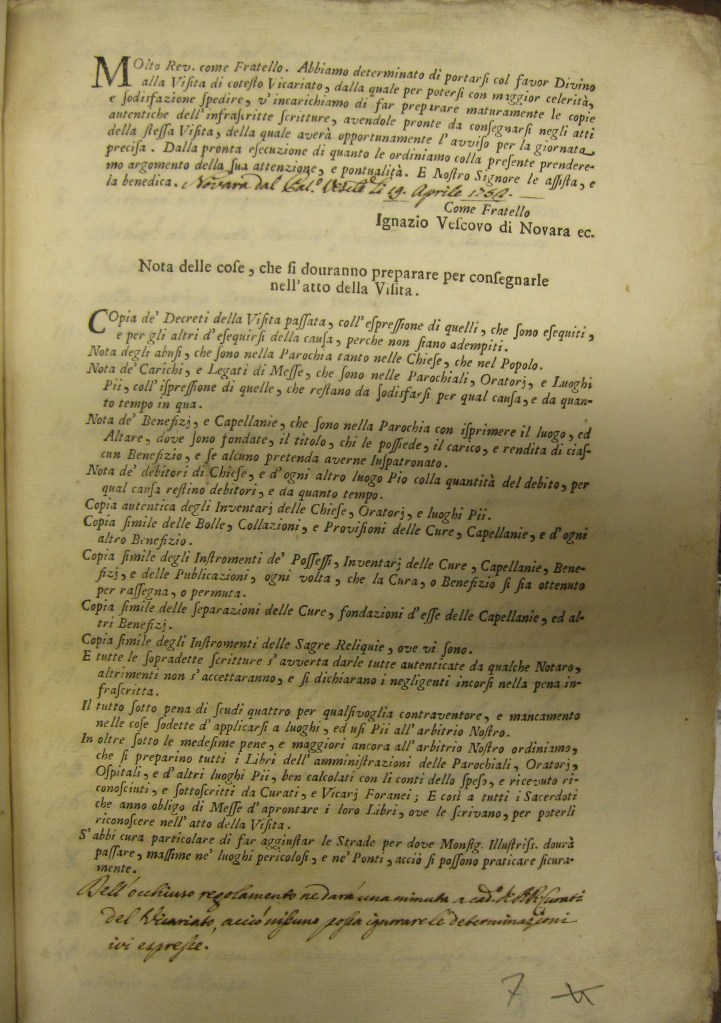 MOlto Rev. come Fratello. Abbiamo determinato di portarſi col favor Divino
alla Viſita di coteſto Vicariato, dalla quale per poterſi con maggior celerità,
e ſodisfazione ſpedire, v'incarichiamo di far preparare maturamente le copie
autentiche dell'infraſcritte ſcritture, avendole pronte da conſegnarſi negli atti
della ſteſſa Viſita, della quale averà opportunamente l'avviſo per la giornata
preciſa. Dalla pronta eſecuzione di quanto le ordiniamo colla preſente prendere-
mo argomento della ſua attenzione, e pontualità. E Noſtro Signore le aſſiſta, e
la benedica. Novara dal li 19. Aprile
Come Fratello
Ignazio Veſcovo di Novara ec.
Nota delle coſe, che ſi douranno preparare per conſegnarle
nell'atto della Viſita.
COpia de' Decreti della Viſita paſſata, coll'eſpreſſione di quelli, che ſono eſequiti,
e per gli altri d'eſequirſi della cauſa, perche non ſiano adempiti.
Nota degli abuſi, che ſono nella Parochia tanto nelle Chieſe, che nel Popolo.
Nota de' Carichi, e Legati di Meſſe, che ſono nelle Parochiali, Oratorj, e Luoghi
Pii, coll'iſpreſſione di quelle, che reſtano da ſodisfarſi per qual cauſa, e da quan-
to tempo in qua.
Nota de' Benefizj, e Capellanie, che ſono nella Parochia con iſprimere il luogo, ed
Altare, dove ſono fondate, il titolo, chi le poſſiede, il carico, e rendita di ciaſ-
cun Benefizio, e ſe alcuno pretenda averne Iuſpatronato.
Nota de' debitori di Chieſe, e d'ogni altro luogo Pio colla quantità del debito, per
qual cauſa reſtino debitori, e da quanto tempo.
Copia autentica degli Inventarj delle Chieſe, Oratorj, e luoghi Pii.
Copia ſimile delle Bolle, Collazioni, e Proviſioni delle Cure, Capellanie, e d'ogni
altro Benefizio.
Copia ſimile degli Inſtromenti de' Poſſeſſi, Inventarj delle Cure, Capellanie, Bene-
fizj, e delle Publicazioni, ogni volta, che la Cura, o Benefizio ſi ſia ottenuto
per raſſegna, o permuta.
Copia ſimile delle ſeparazioni delle Cure, fondazioni d'eſſe delle Capellanie, ed al-
tri Benefizj.
Copia ſimile degli Inſtromenti delle Sagre Reliquie, ove vi ſono.
E tutte le ſopradette ſcritture s'avverta darle tutte autenticate da qualche Notaro,
altrimenti non s'accettaranno, e ſi dichiarano i negligenti incorſi nella pena in-
fraſcritta.
Il tutto ſotto pena di ſcudi quattro per qualſivoglia contraventore, e mancamento
nelle coſe ſodette d'applicarſi a luoghi, ed uſi Pii all'arbitrio Noſtro.
In oltre ſotto le medeſime pene, e maggiori ancora all'arbitrio Noſtro ordiniamo,
che ſi preparino tutti i Libri dell'amminiſtrazioni delle Parochiali, Oratorj,
Oſpitali, e d'altri luoghi Pii, ben calcolati con li conti dello ſpeſo, e ricevuto ri-
conoſciuti, e ſottoſcritti da Curati, e Vicarj Foranei; E così a tutti i Sacerdoti
che anno obligo di Meſſe d'aprontare i loro Libri, ove le ſcrivano, per poterli
riconoſcere nell'atto della Viſita.
S'abbi cura particolare di far aggiuſtar le Strade per dove Monſig. Illuſtriſs. dourà
paſſare, maſſime ne' luoghi pericoloſi, e ne' Ponti, acciò ſi poſſono praticare ſicura-
mente.
Dell'occhiuso regolamento ne darà una minuta a cad.o Curati
del Vicariato, acciò niſſuno poſſa ignorare le determinazioni
ivi espreſſe.
7